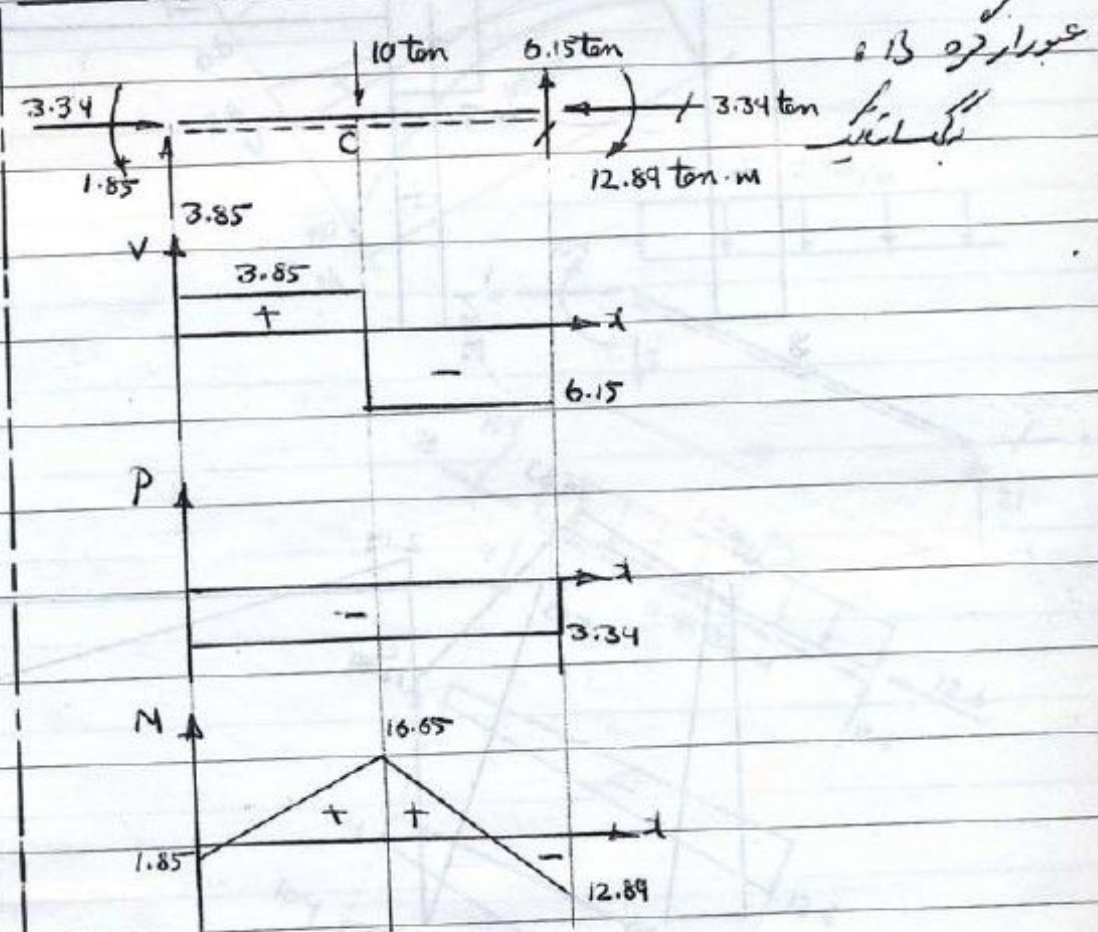 عبور از گره B :
10 ton
6.15 ton
3.34
3.34 ton
A
C
1.85
12.89 ton.m
3.85
V
3.85
+
x
-
6.15
P
x
-
3.34
M
16.65
+ +
x
1.85
-
12.89